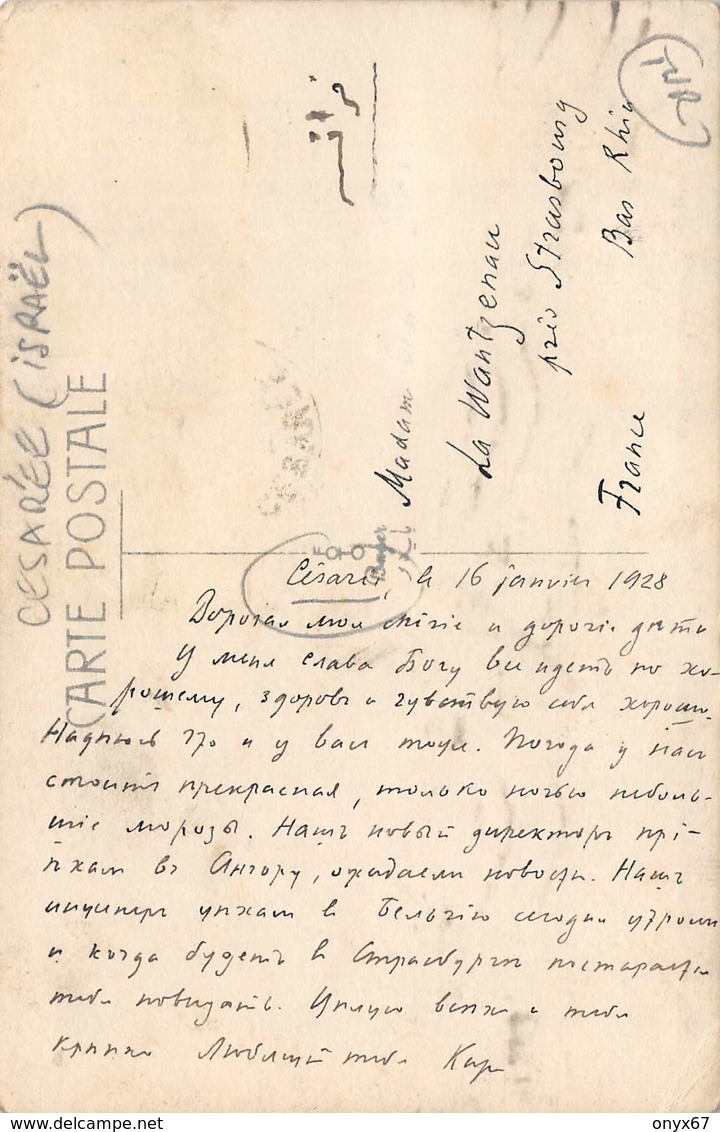 CESARÉE (ISRAËL)
CARTE POSTALE
Madam
La Wantzenau
près Strasbourg
Bas Rhin
France
FOTO
Césaré, le 16 janvier 1928
Дорогая моя и дорогіе дѣти
У меня слава Богу все идетъ по хо-
рошему, здоровъ и чувствую себя хорошо.
Надѣюсь что и у васъ тоже. Погода у насъ
стоитъ прекрасная, только ночью неболь-
шіе морозы. Нашъ новый директоръ прі-
ѣхалъ въ Ангору, ожидаемъ новости. Нашъ
инженеръ уѣхалъ въ Бельгію сегодня утромъ
и когда будетъ въ Страсбургѣ постарается
тебя повидать. Цѣлую всѣхъ и тебя
крѣпко Любящій тебя
delcampe.net
onyx67